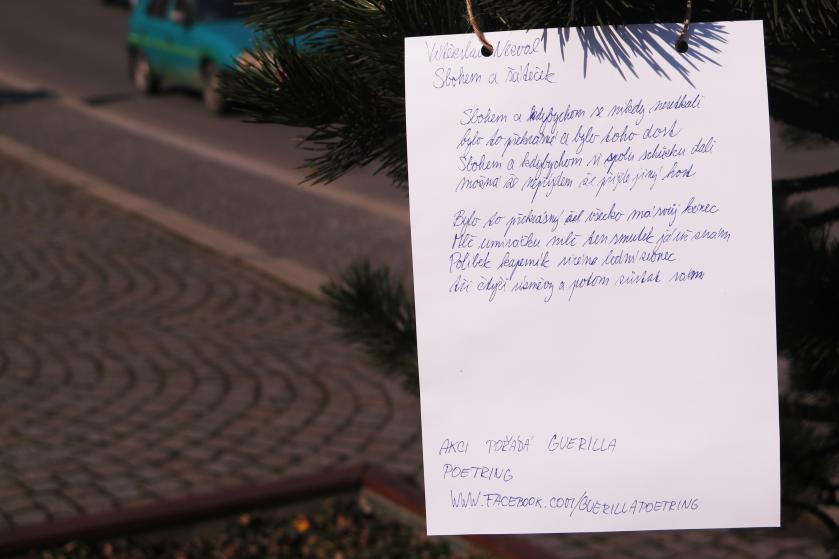 Vítězslav Nezval
Sbohem a šáteček
Sbohem a kdybychom se nikdy nesetkali
bylo to překrásné a bylo toho dost
Sbohem a kdybychom si spolu schůzku dali
možná že nepřijdem že přijde jiný host
Bylo to překrásné žel všecko má svůj konec
Mlč umíráčku mlč ten smutek já už znám
Polibek kapesník siréna lodní zvonec
tři čtyři úsměvy a potom zůstat sám
AKCI POŘÁDÁ GUERILLA
POETRING
WWW.FACEBOOK.COM/GUERILLAPOETRING